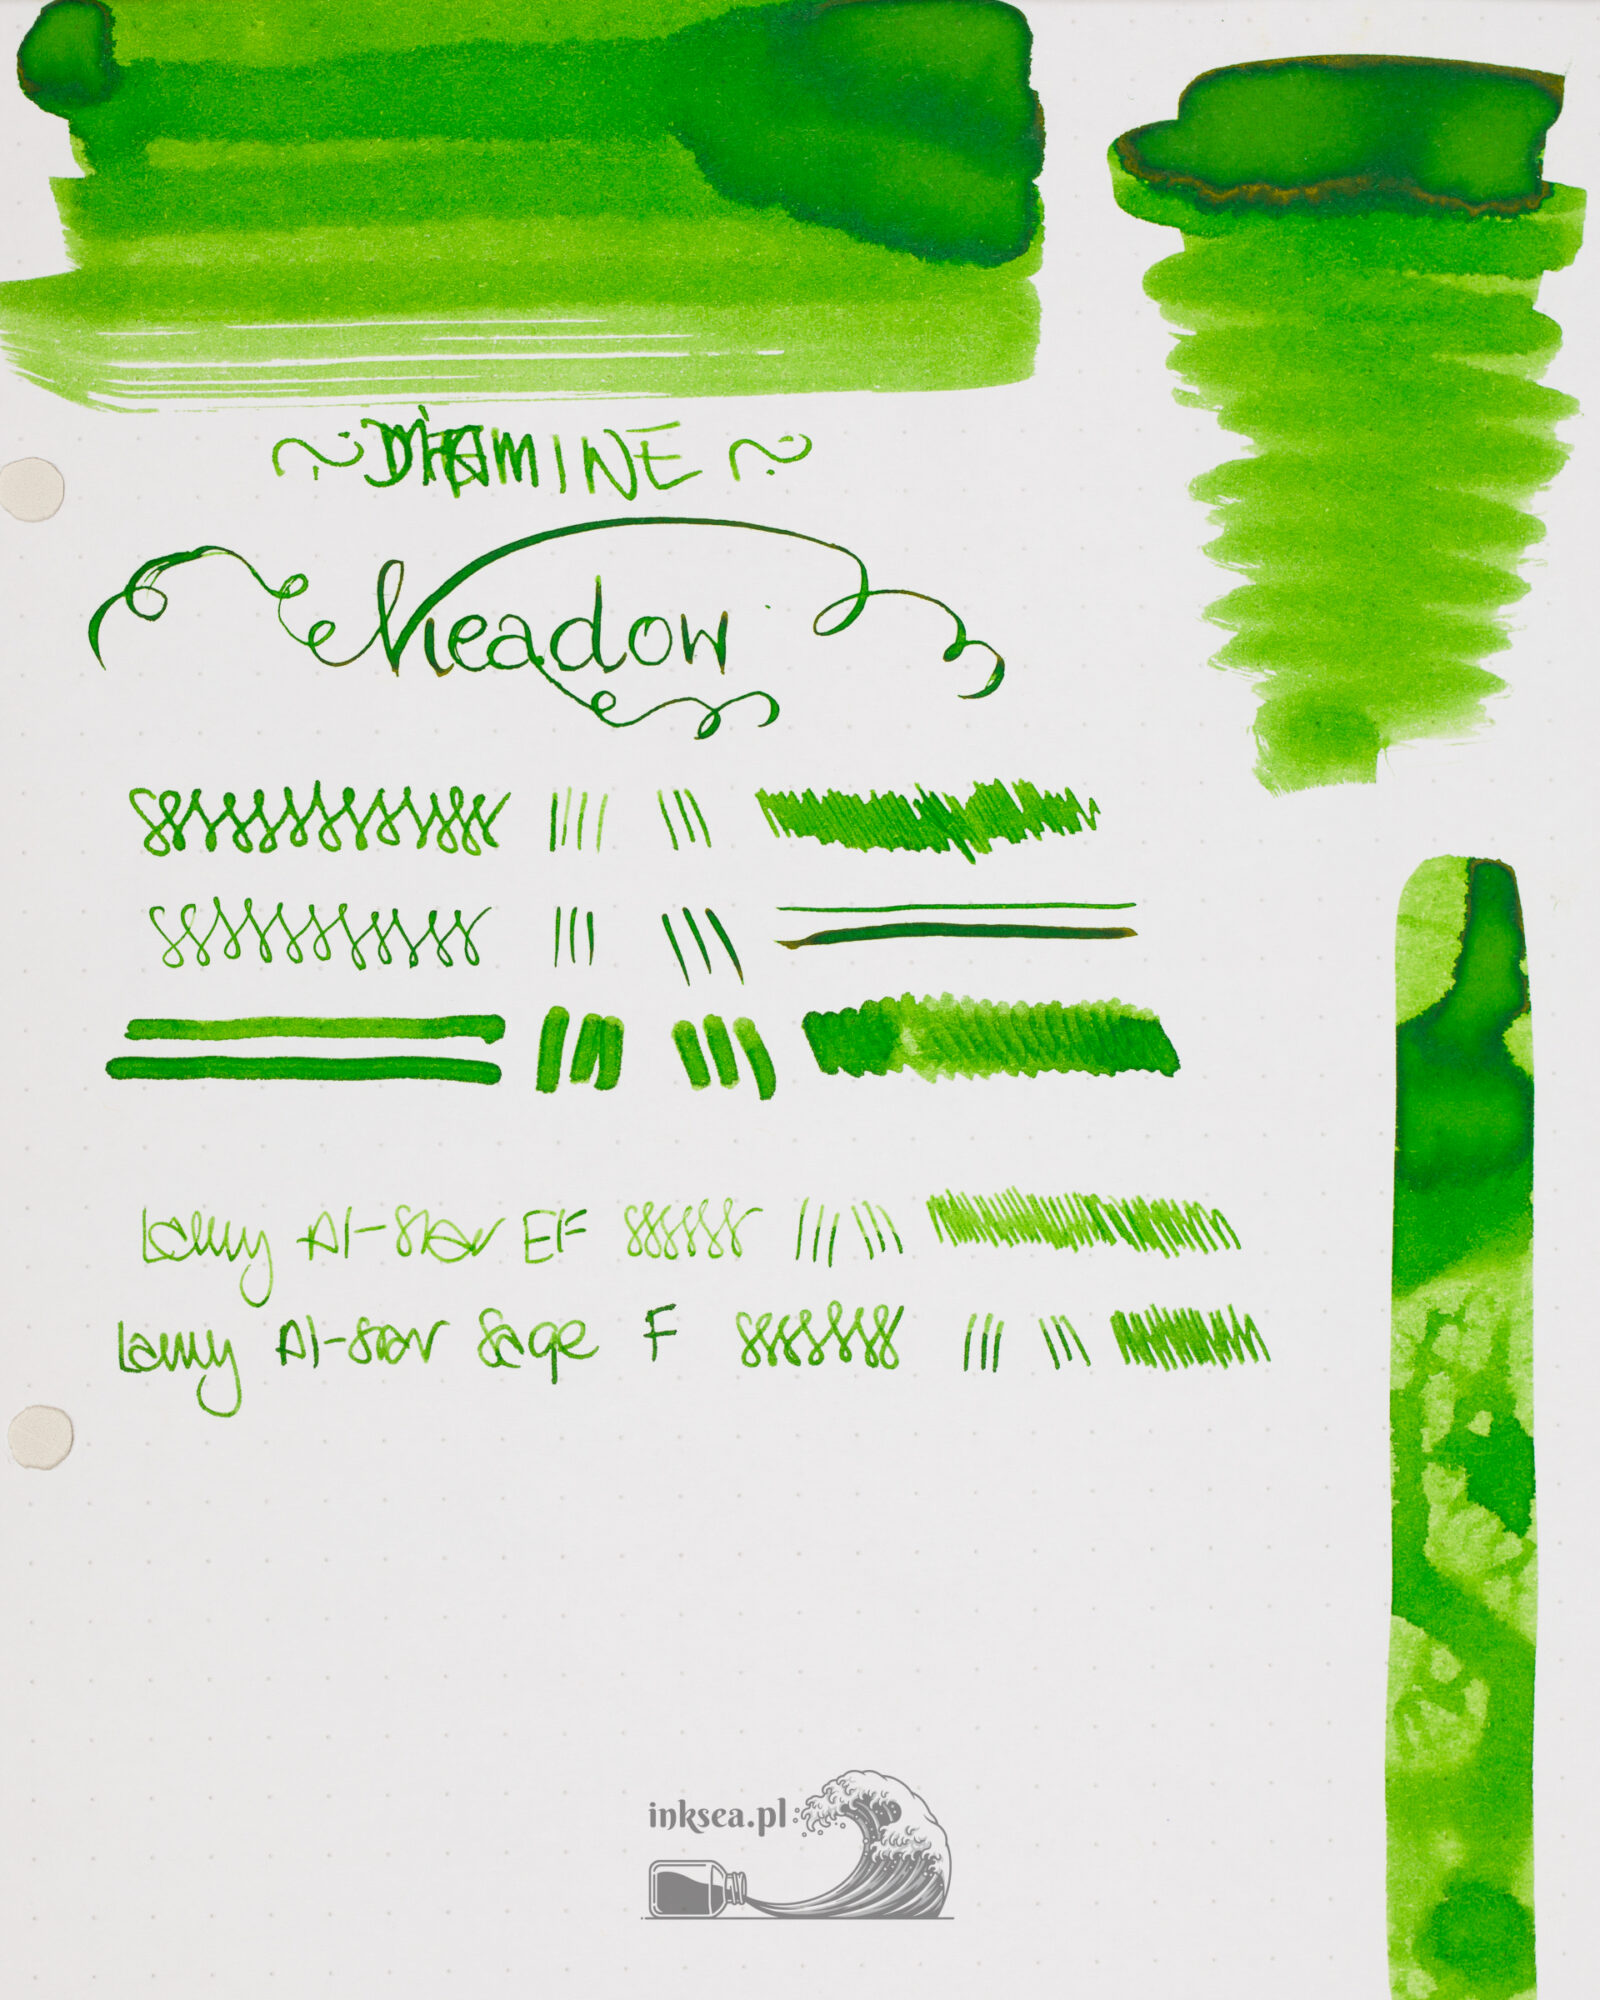 ~ DIAMINE ~
Meadow
Lamy Al-Star EF
Lamy Al-Star Sage F
inksea.pl